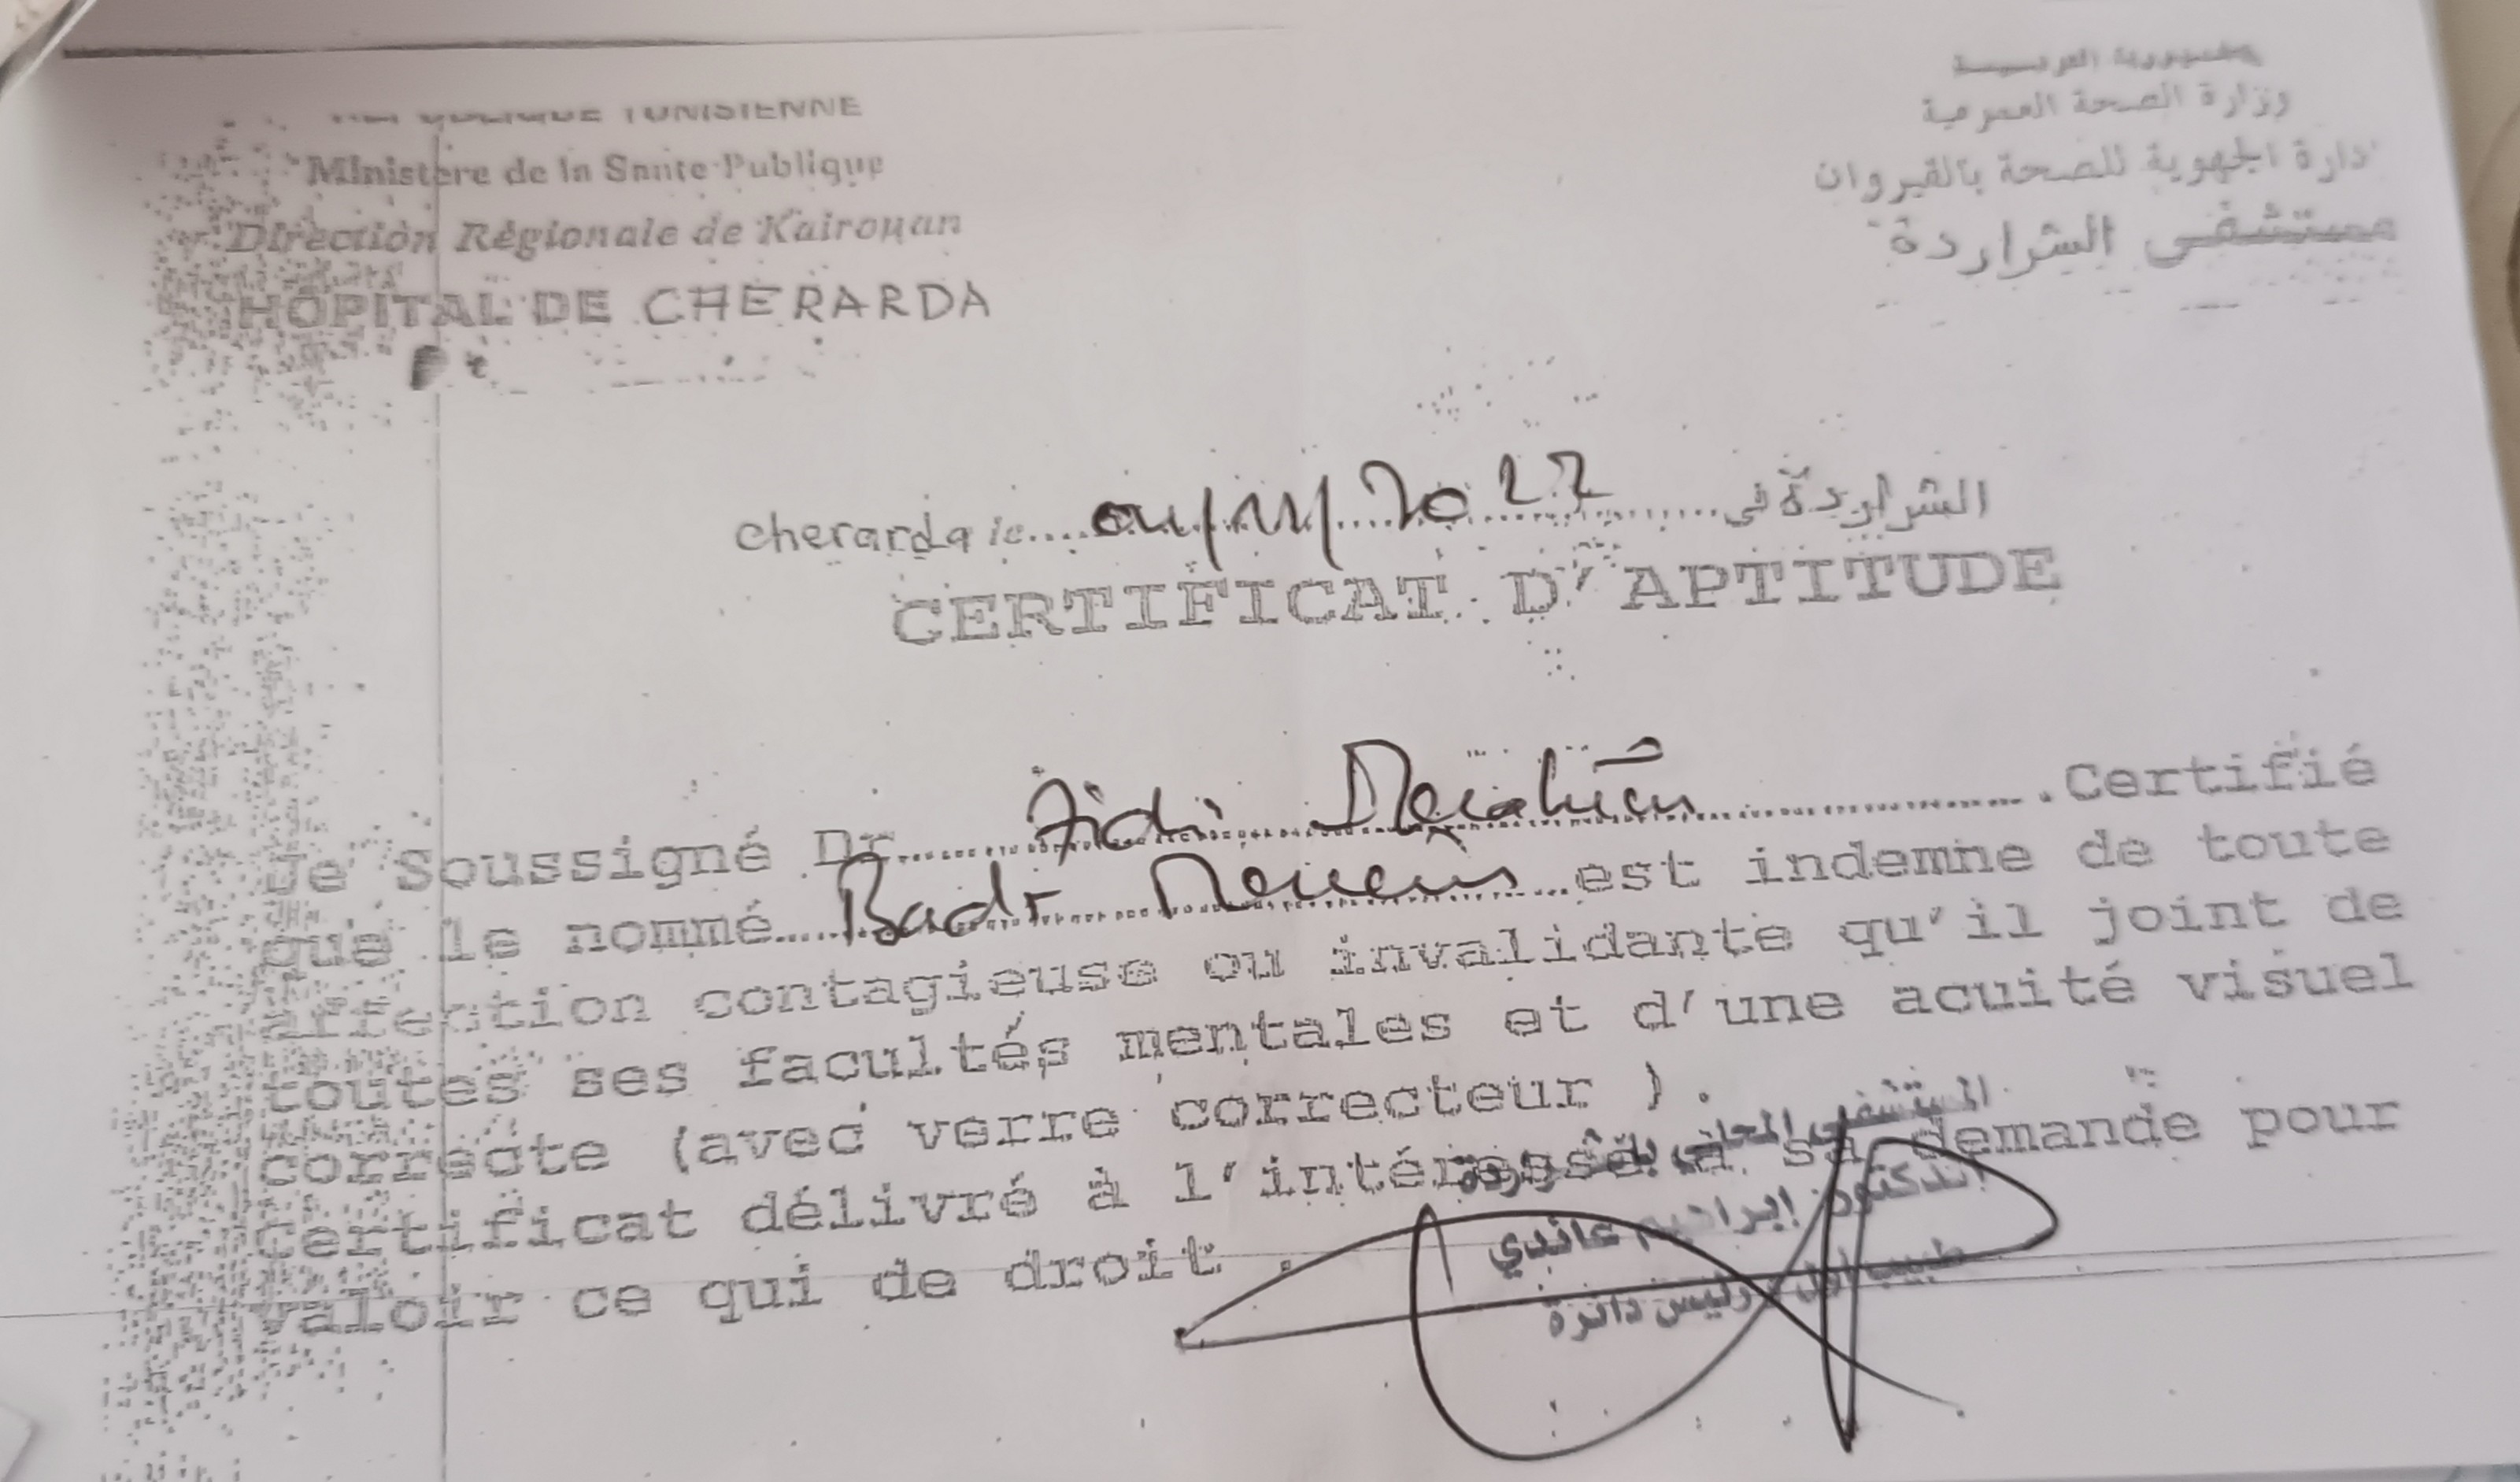 REPUBLIQUE TUNISIENNE
Ministère de la Sante Publique
Direction Régionale de Kairouan
HOPITAL DE CHERARDA
الجمهورية التونسية
وزارة الصحة العمومية
دارة الجهوية للصحة بالقيروان
مستشفى الشراردة
cherarda le 04/11/2022 الشراردة في
CERTIFICAT D'APTITUDE
Je Soussigné Dr Certifié
que le nommé Badr est indemne de toute
affection contagieuse ou invalidante qu'il joint de
toutes ses facultés mentales et d'une acuité visuel
correcte (avec verre correcteur ).
Certificat délivré à l'intéressé à sa demande pour
valoir ce qui de droit .
المستشفى المحلي بالشراردة
الدكتور إبراهيم عائدي
طبيب أول رئيس دائرة